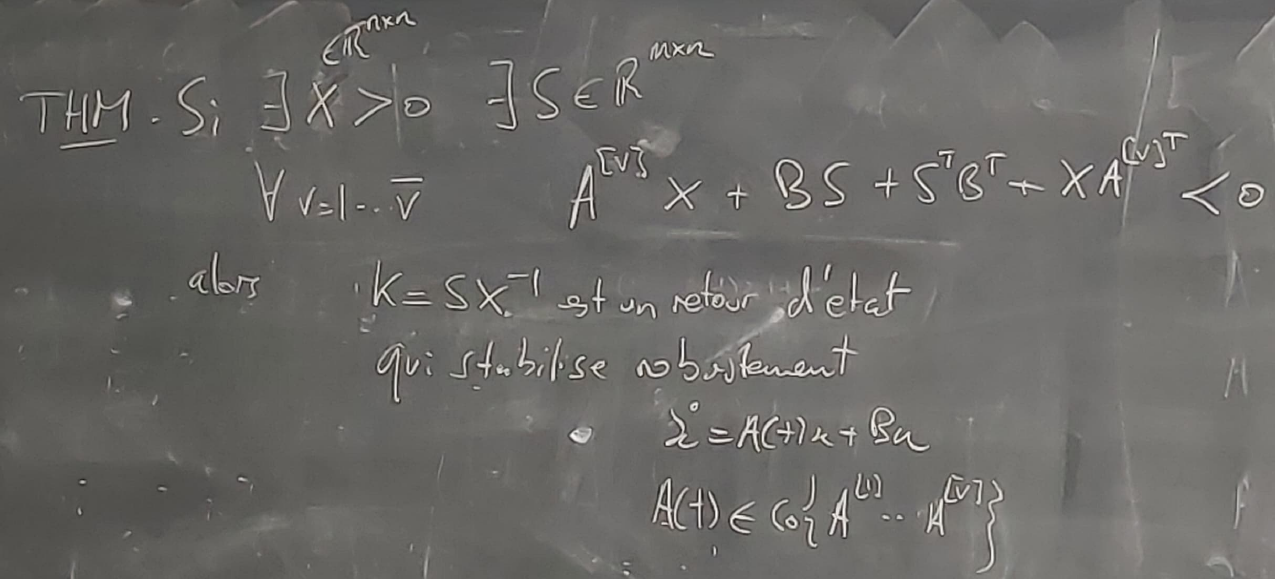 THM. Si ∃ X ∈ ℝ^{n×n} > 0 ∃ S ∈ ℝ^{m×n}
∀ v=1...v̅ A^{[v]} X + BS + S^T B^T + X A^{[v]T} < 0
alors K = SX^{-1} est un retour d'état
qui stabilise robustement
ẋ = A(t)x + Bu
A(t) ∈ Co{A^{[1]} .. A^{[v̅]}}